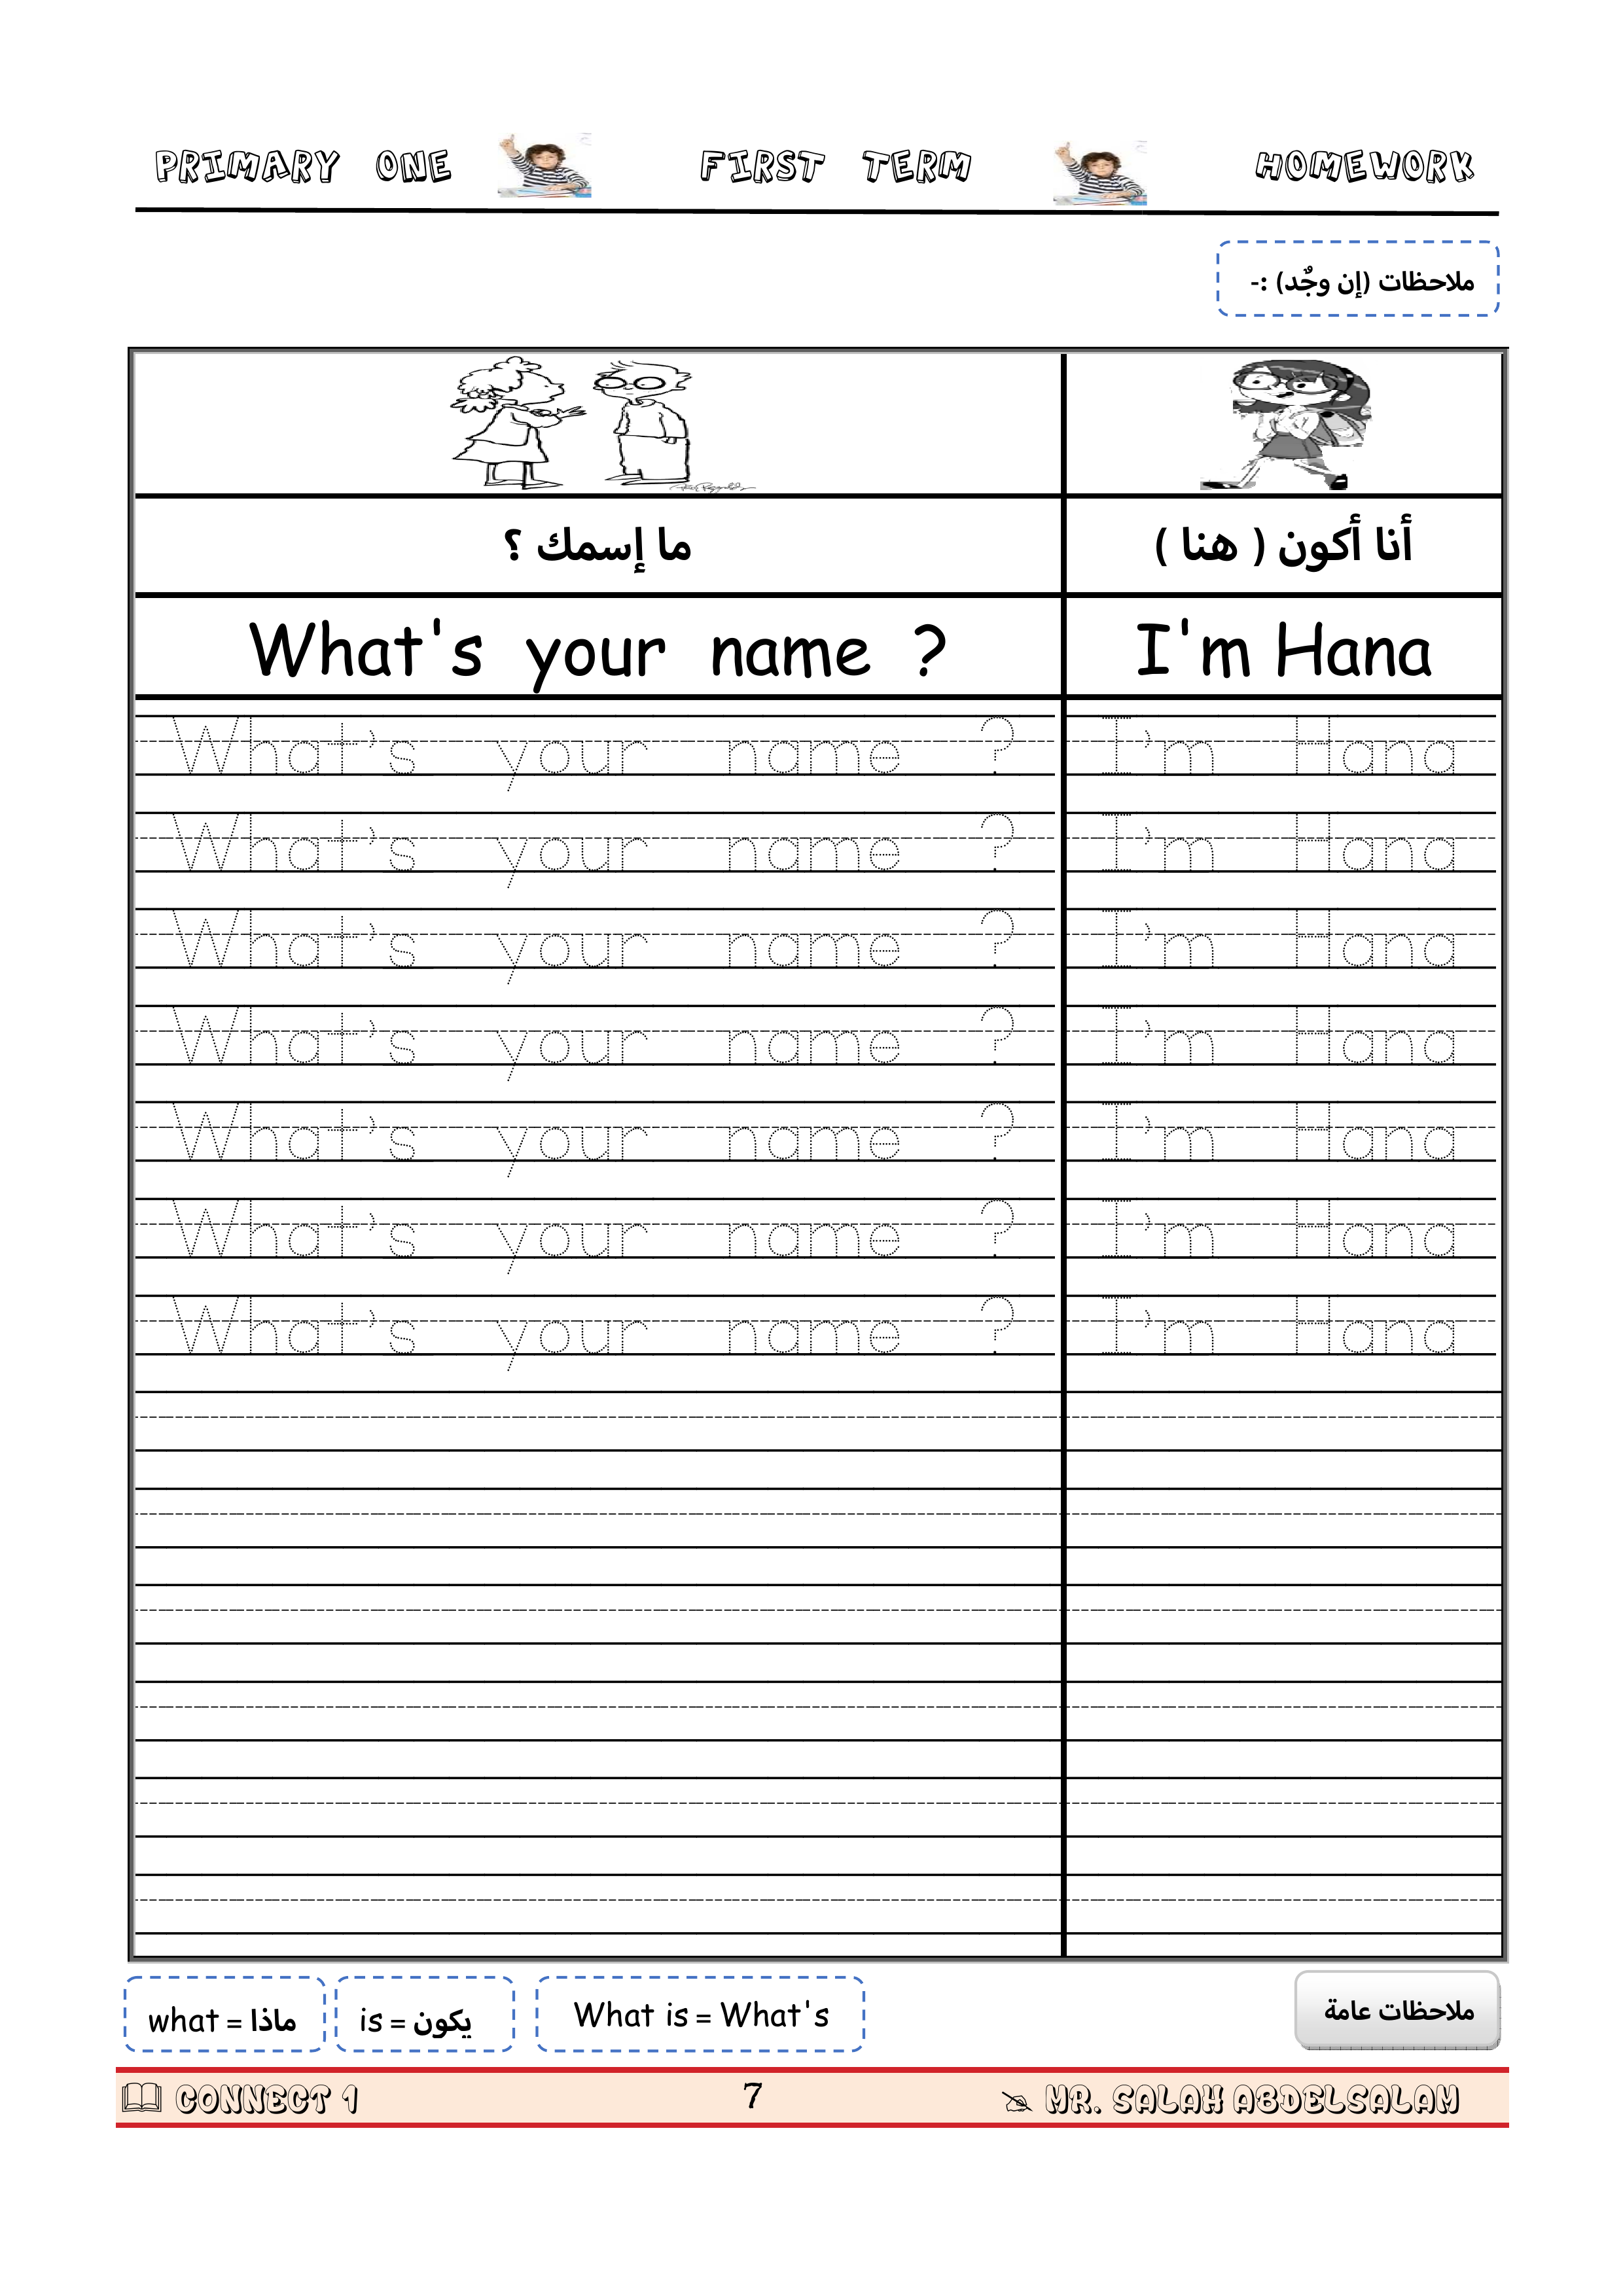 PRIMARY ONE FIRST TERM HOMEWORK
ملاحظات (إن وجٌد) :-
ما إسمك ؟ أنا أكون ( هنا )
What's your name ? I'm Hana
What's your name ? I'm Hana
What's your name ? I'm Hana
What's your name ? I'm Hana
What's your name ? I'm Hana
What's your name ? I'm Hana
What's your name ? I'm Hana
What's your name ? I'm Hana
what = ماذا is = يكون What is = What's ملاحظات عامة
CONNECT 1 7 MR. SALAH ABDELSALAM